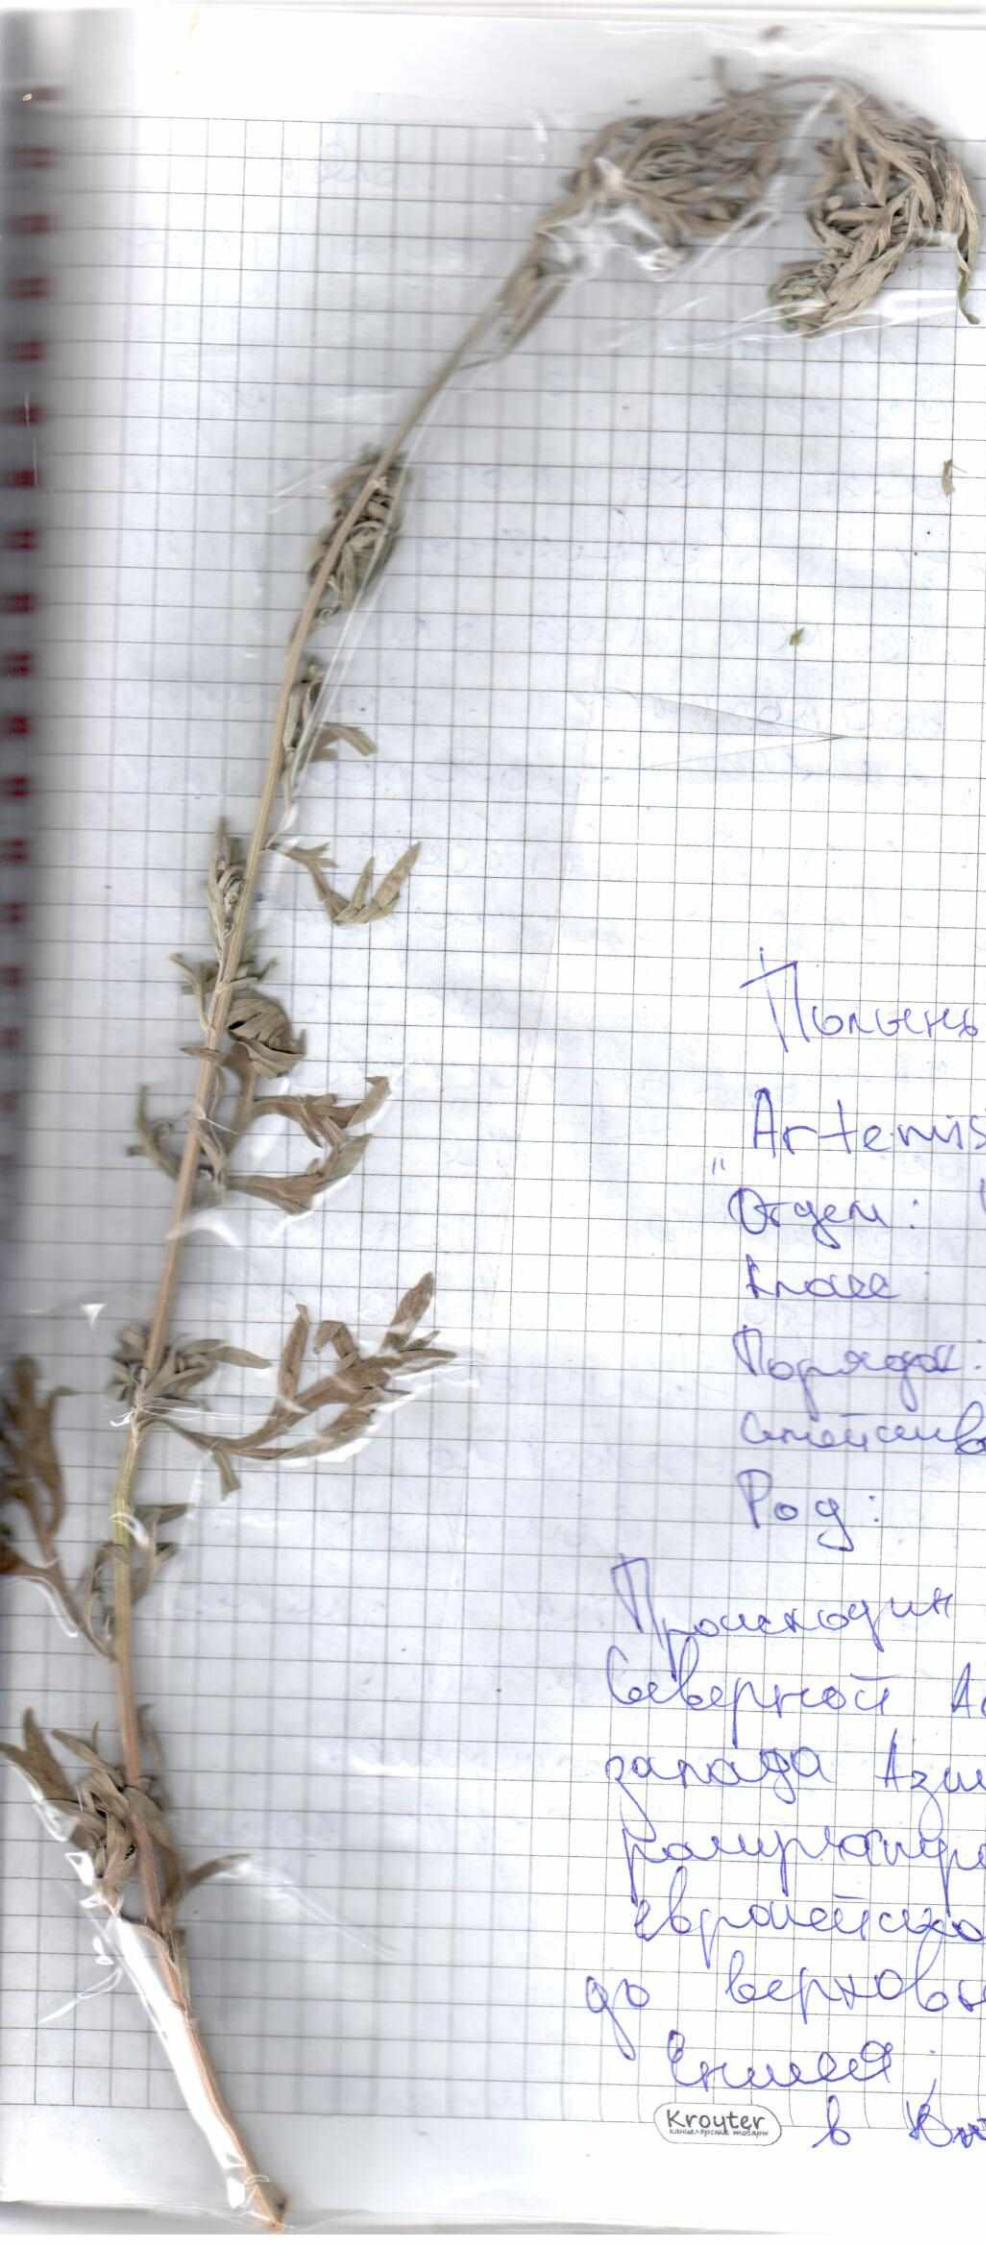 Полынь
Artemis
"Отдел:
Класс:
Порядок:
Семейств
Род:
Происходит
Северной А
запада Ази
европейско
до верховь
Енисея;
Kroyter
канцелярские товары
в